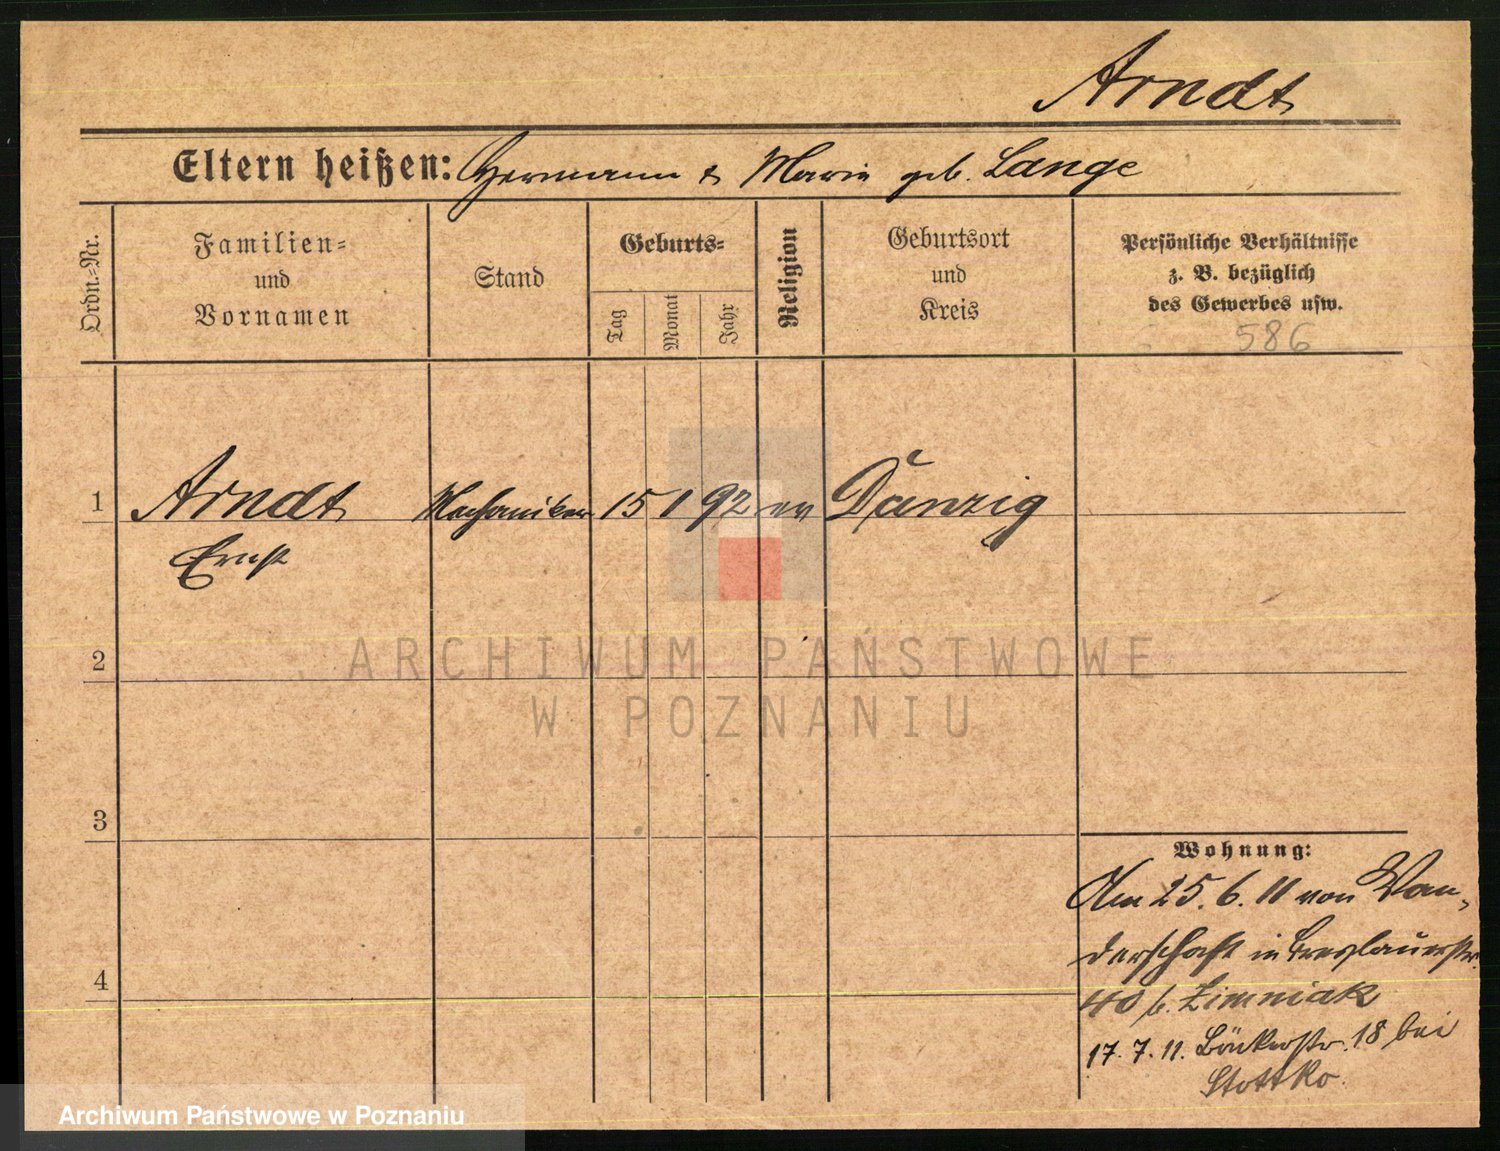 Arndt
Eltern heißen: Hermann & Marie geb. Lange
Ordn.=Nr.
Familien=
und
Vornamen
Stand
Geburts=
Tag
Monat
Jahr
Religion
Geburtsort
und
Kreis
Persönliche Verhältnisse
z. B. bezüglich
des Gewerbes usw.
586
1 Arndt Mechaniker 15 1 92 ev Danzig
Ernst
2
3
4
Wohnung:
Am 25. 6. 11 von Wan-
derschaft in Breslauerstr.
40 b. Zimniak
17. 7. 11. Bäckerstr. 18 bei
Stottko.
ARCHIWUM PAŃSTWOWE
W POZNANIU
Archiwum Państwowe w Poznaniu